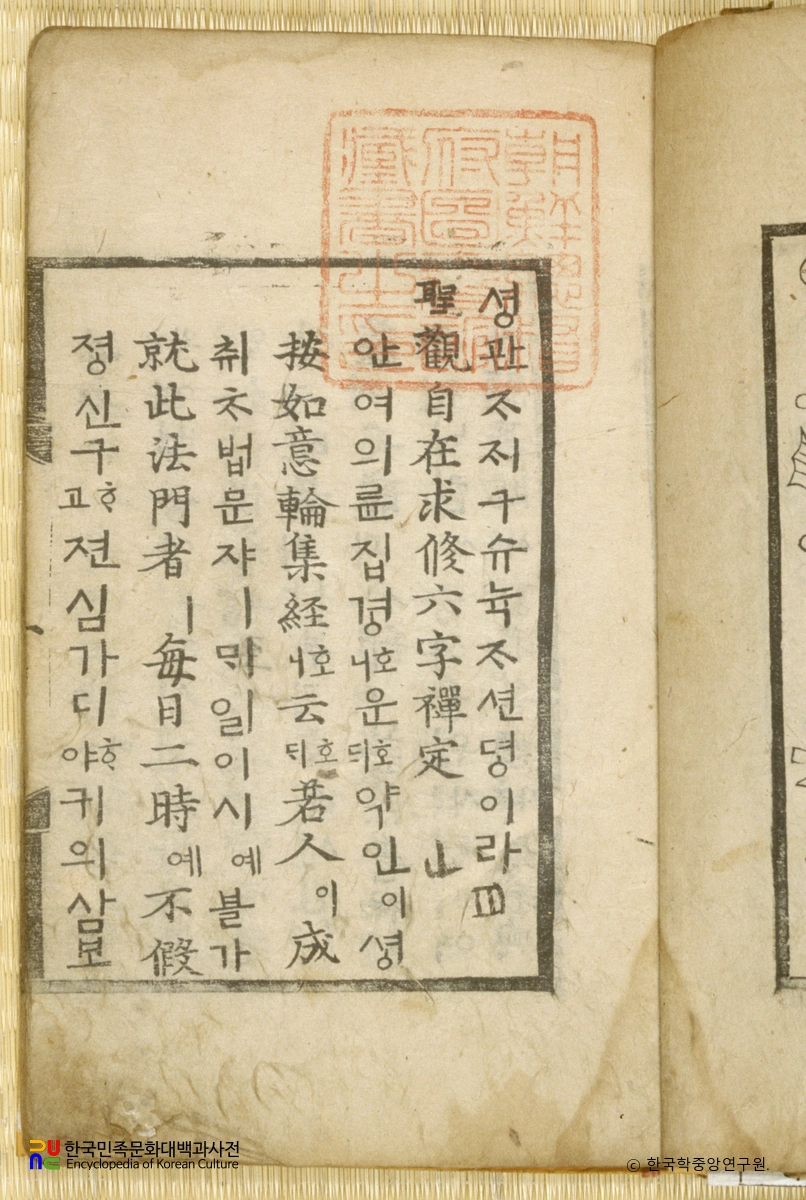 朝鮮總督
府圖書館
藏書之印
셩관ᄌᆞᄌᆡ구슈뉵ᄌᆞ션뎡이라
聖觀自在求修六字禪定
안여의륜집경호니운호ᄃᆡ약인이셩
按如意輪集経호니云호ᄃᆡ若人이成
취ᄎᆞ법문쟈ㅣᄆᆡ일이시예블가
就此法門者ㅣ每日二時예不假
졍신구ᄒᆞ고젼심가디ᄒᆞ야귀의삼보
한국민족문화대백과사전
Encyclopedia of Korean Culture
ⓒ 한국학중앙연구원.